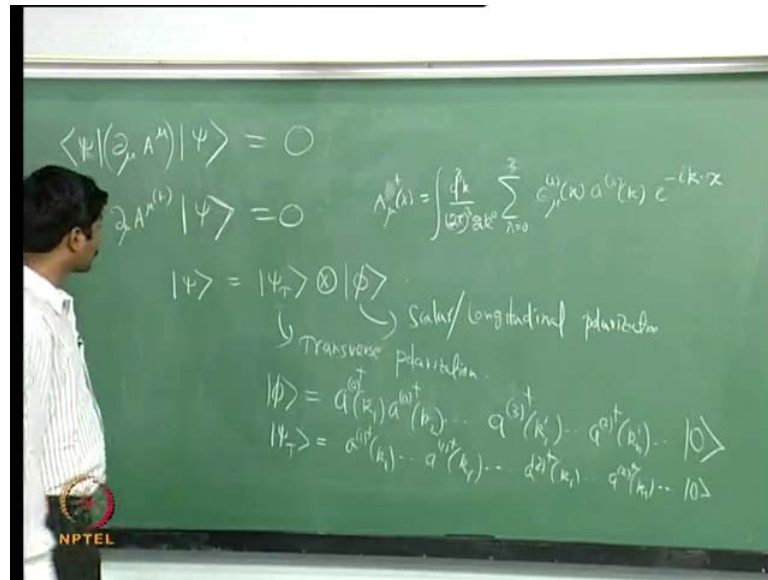 ⟨Ψ|(∂_μ A^μ)|Ψ⟩ = 0
∂A^{μ(+)}|Ψ⟩ = 0
A_μ^+(x) = ∫ d³k/((2π)³ 2k⁰) Σ_{λ=0}^{3} ε_μ^{(λ)}(k) a^{(λ)}(k) e^{-ik·x}
|Ψ⟩ = |Ψ_T⟩ ⊗ |ϕ⟩.
Scalar/Longitudinal polarization
Transverse polarization.
|ϕ⟩ = a^{(0)†}(k_1) a^{(0)†}(k_2)... a^{(3)†}(k_1')... a^{(3)†}(k_n')... |0⟩
|Ψ_T⟩ = a^{(1)†}(k_1)... a^{(1)†}(k_n)... a^{(2)†}(k_1)... a^{(2)†}(k_n)... |0⟩
NPTEL